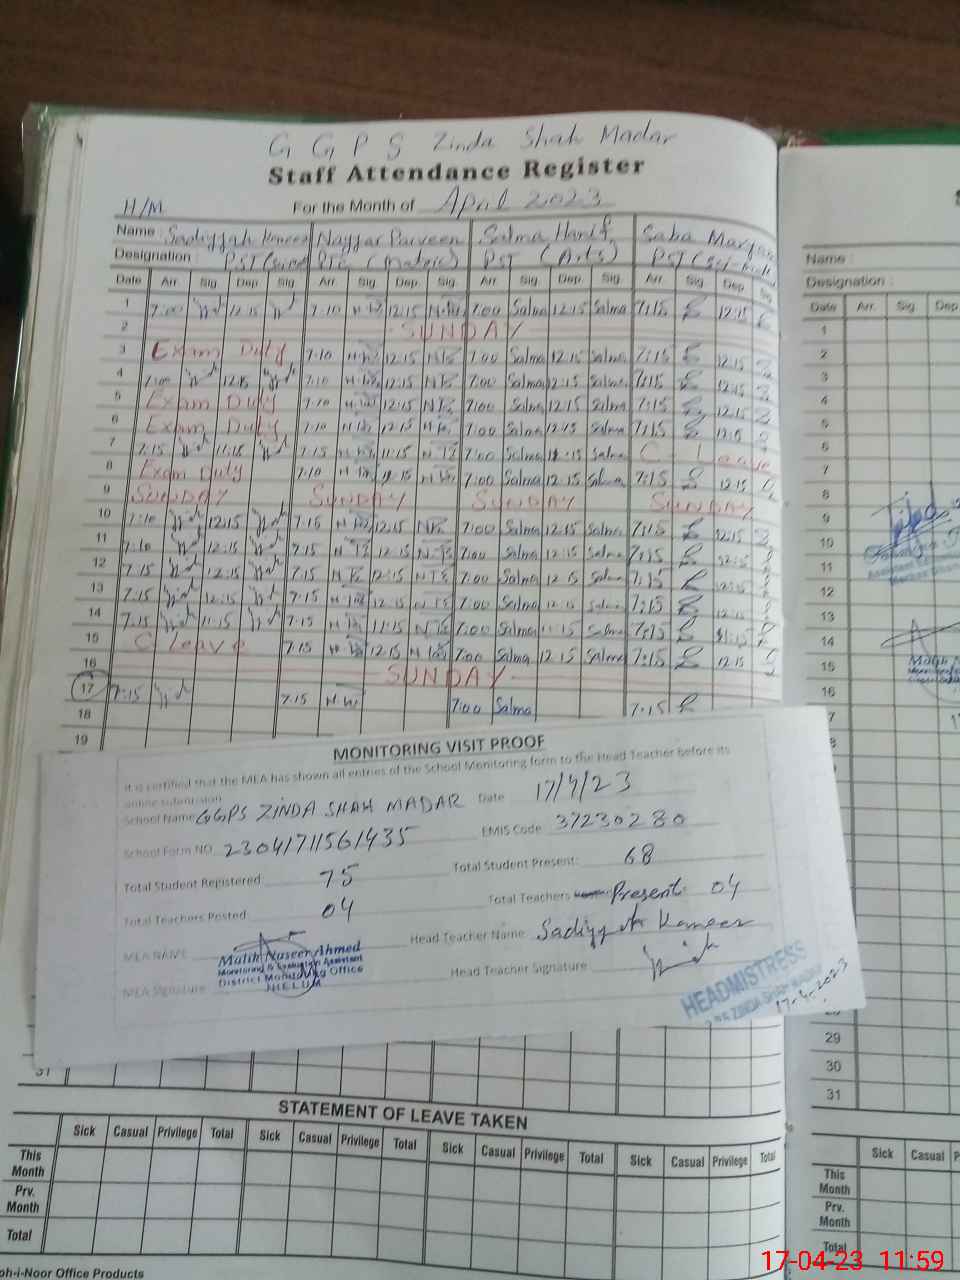 G G P S Zinda Shah Madar
Staff Attendance Register
H/M For the Month of April 2023
Name : Sadiyyah Kaneez Nayyar Parveen Salma Hanif Saba Maryam
Designation : PST PTC (Matric) PST (Arts) PST
Date Arr. Sig. Dep. Sig. Arr. Sig. Dep. Sig. Arr. Sig. Dep. Sig. Arr. Sig. Dep. Sig.
1 7:00 12:15 7:10 12:15 7:00 Salma 12:15 Salma 7:15 12:15
2 SUNDAY
3 Exam Duty 7:10 12:15 7:00 Salma 12:15 Salma 7:15 12:15
4 7:00 12:15 7:10 12:15 7:00 Salma 12:15 Salma 7:15 12:15
5 Exam Duty 7:10 12:15 7:00 Salma 12:15 Salma 7:15 12:15
6 Exam Duty 7:10 12:15 7:00 Salma 12:15 Salma 7:15
7 7:15 11:15 7:15 11:15 7:00 Salma Salma C. Leave
8 Exam Duty 7:10 7:00 Salma 12:15 Salma 7:15 12:15
9 SUNDAY SUNDAY SUNDAY SUNDAY
10 7:10 12:15 7:15 12:15 7:00 Salma 12:15 Salma 7:15 12:15
11 7:10 12:15 7:15 12:15 7:00 Salma 12:15 Salma 7:15 12:15
12 7:15 12:15 7:15 12:15 7:00 Salma 12:15 Salma 7:15 12:15
13 7:15 12:15 7:15 12:15 7:00 Salma 12:15 Salma 7:15 12:15
14 7:15 11:15 7:15 11:15 7:00 Salma 11:15 Salma 7:15 11:15
15 C Leave 7:15 12:15 7:00 Salma 12:15 Salma 7:15 12:15
16 SUNDAY
17 7:15 7:15 7:00 Salma 7:15
18
19
MONITORING VISIT PROOF
It is certified that the MEA has shown all entries of the School Monitoring form to the Head Teacher before its
online submission
School Name GGPS ZINDA SHAH MADAR Date 17/4/23
School Form NO. 23041711561435 EMIS Code 37230280
Total Student Registered: 75 Total Student Present: 68
Total Teachers Posted: 04 Total Teachers Present: 04
MEA NAME Malik Naseer Ahmed Head Teacher Name Sadiyyah Kaneez
Monitoring & Evaluation Assistant
District Monitoring Office
JHELUM
MEA Signature Head Teacher Signature
HEADMISTRESS
ZINDA SHAH MADAR
17-4-2023
31
STATEMENT OF LEAVE TAKEN
Sick Casual Privilege Total Sick Casual Privilege Total Sick Casual Privilege Total Sick Casual Privilege Total
This Month
Prv. Month
Total
oh-i-Noor Office Products
Name :
Designation :
Date Arr. Sig. Dep
1
2
3
4
5
6
7
8
9
10
11
12
13
14
15
16
29
30
31
Sick Casual P
This Month
Prv. Month
Total
17-04-23 11:59